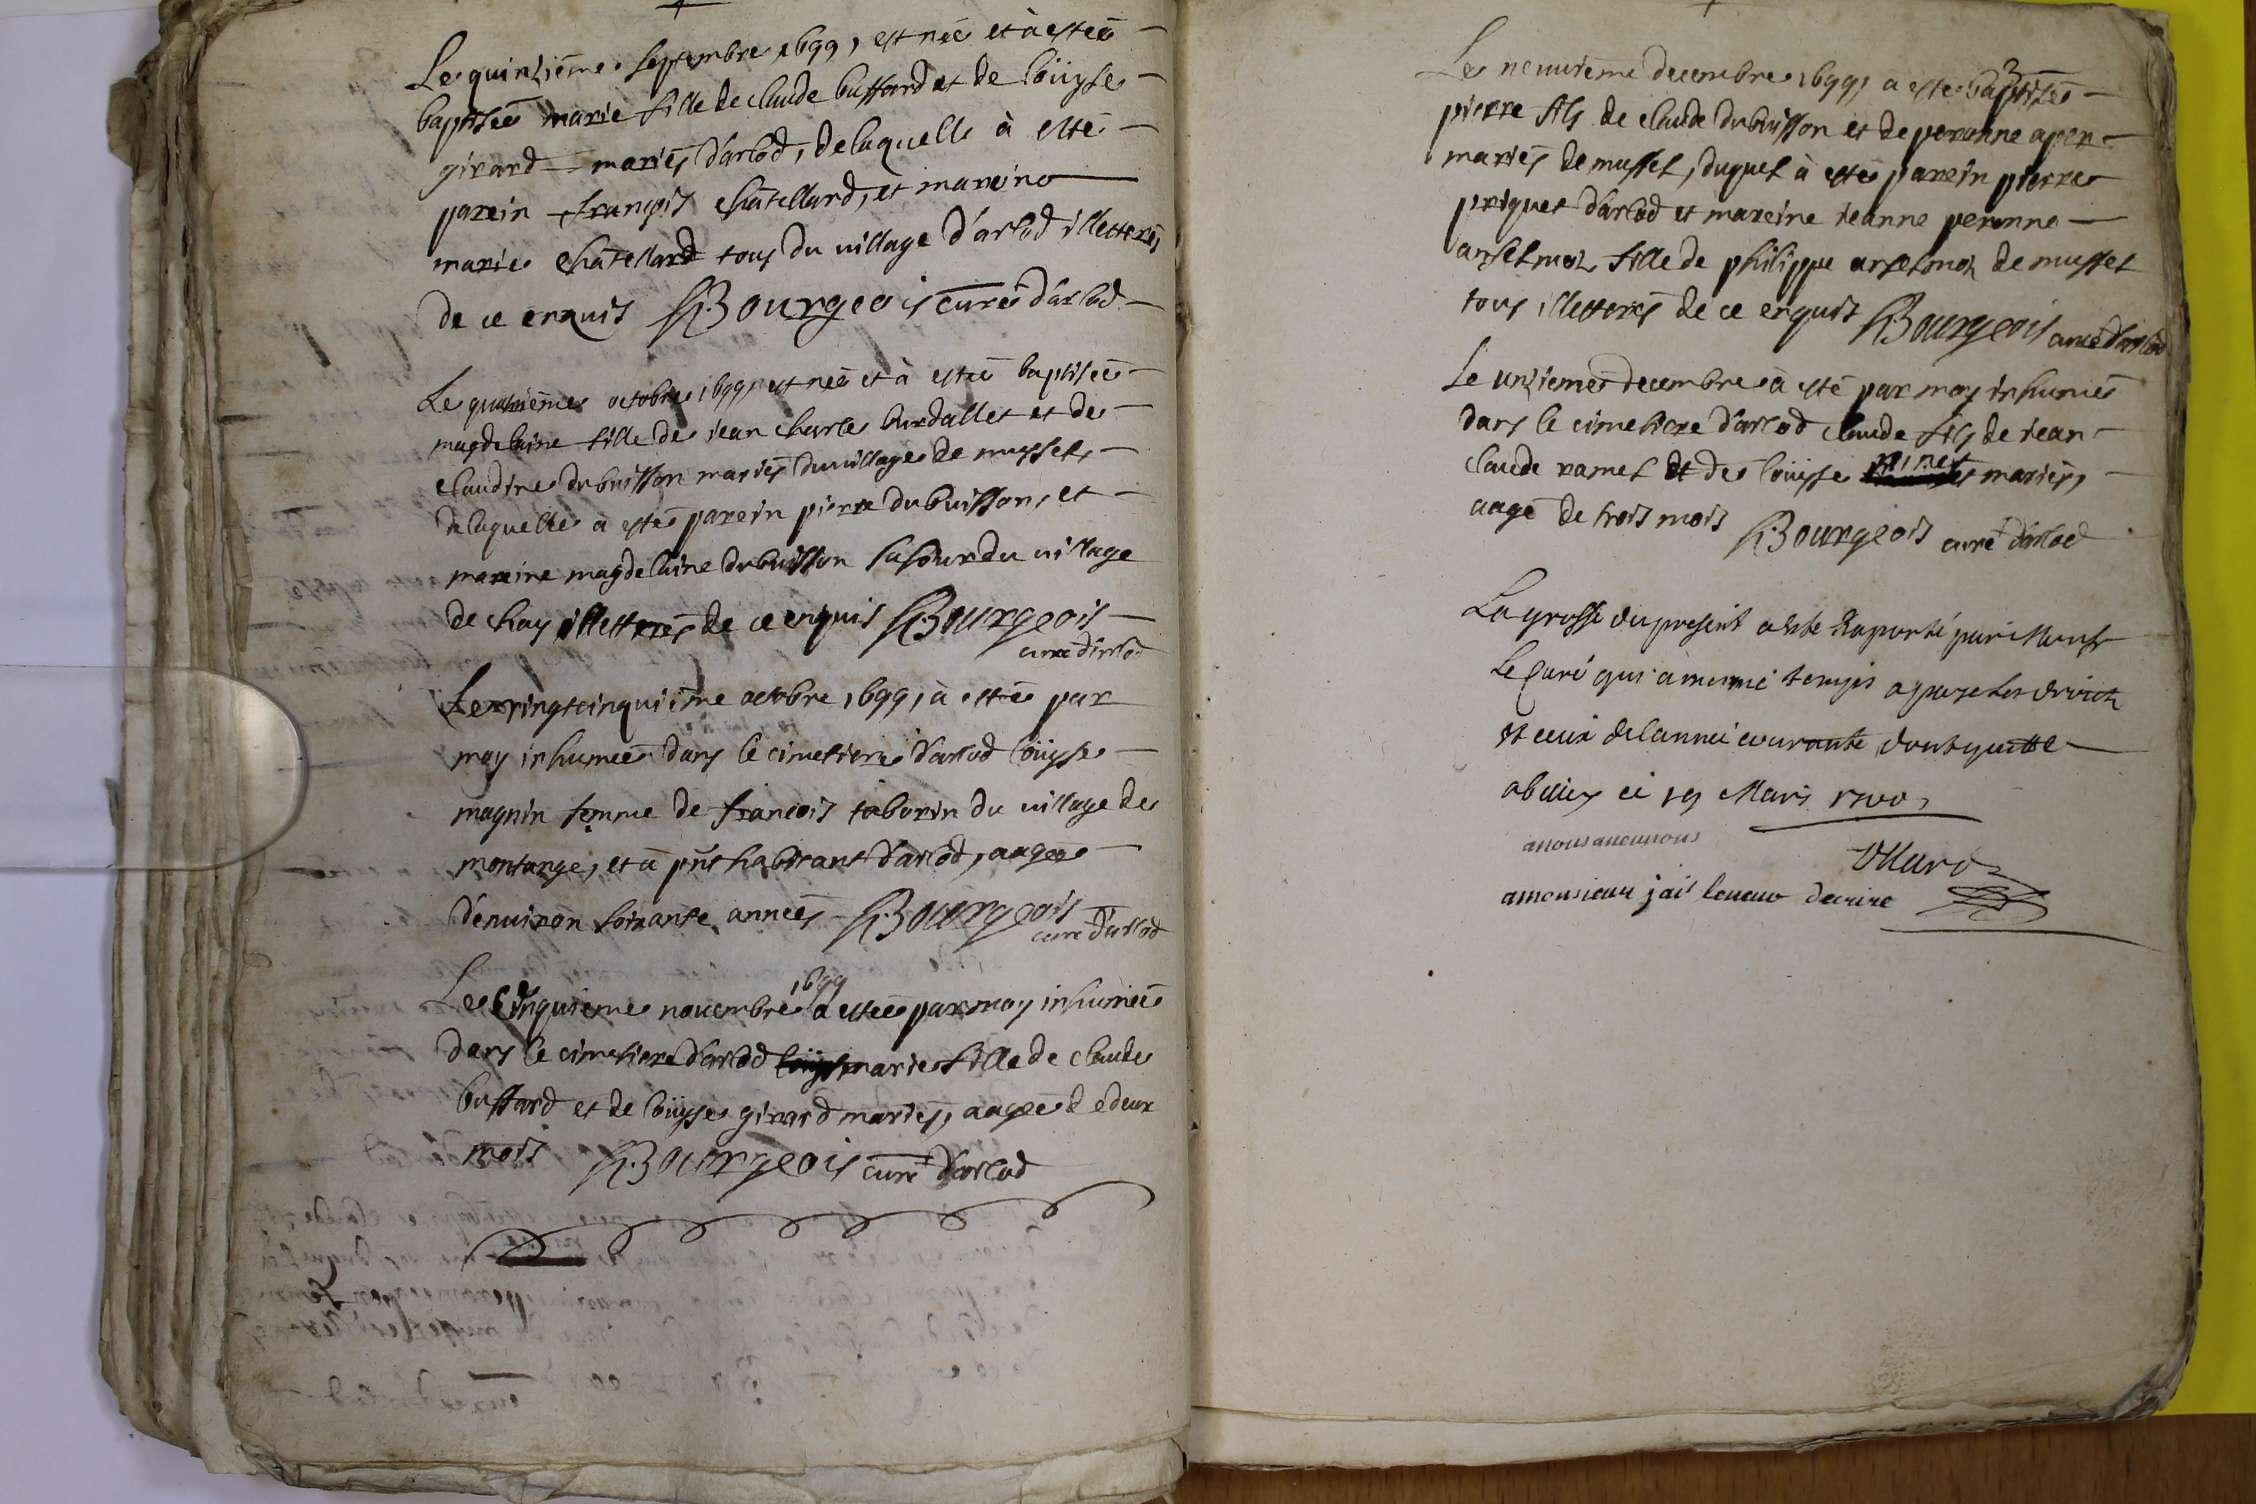 Le quinzième septembre 1699, est née et à estée
baptisée marie fille de claude buffard et de loüyse
girard mariés d'arlod, de laquelle à esté
parein françois châtellard, et mareine
marie châtellard tous du village d'arlod illetterés
de ce enquis Bourgeois curé d'arlod
Le quatrième octobre 1699, est née et à estée baptisée
magdelaine fille de jean charle burdallet et de
claudine dubuisson mariés du village de mussel,
de laquelle a esté parein pierre dubuisson, et
mareine magdelaine dubuisson sa sœur du village
de chay illetterés de ce enquis Bourgeois
curé d'arlod
Le vingtcinquième octobre 1699, à estée par
moy inhumée dans le cimetiere d'arlod loüyse
magnin femme de françois taborin du village de
montange, et à pnt habitant d'arlod, aagée
d'environ soixante années Bourgeois
curé d'arlod
1699
Le cinquieme novembre a estée par moy inhumée
dans le cimetiere d'arlod marie fille de claude
buffard et de loüyse girard mariés, aagée de deux
mois Bourgeois curé d'arlod
Le neuvième decembre 1699, a esté baptisé
pierre fils de claude dubuisson et de peronne apen
mariés de mussel, duquel à esté parein pierre
priquet d'arlod et mareine jeanne peronne
anselmoz fille de philippe anselmoz de mussel
tous illetterés de ce enquis Bourgeois curé d'arlod
Le unzième decembre à esté par moy inhumé
dans le cimetiere d'arlod claude fils de jean
claude ramel et de loüyse minet mariés,
aagé de trois mois Bourgeois curé d'arlod
La grosse du present a esté raporté par Monsr
le Curé qui à mesme temps a payé les droits
et ceux de lannée courante dont quitte
ce 19 Mars 1700
amonsieur j'ai decrire